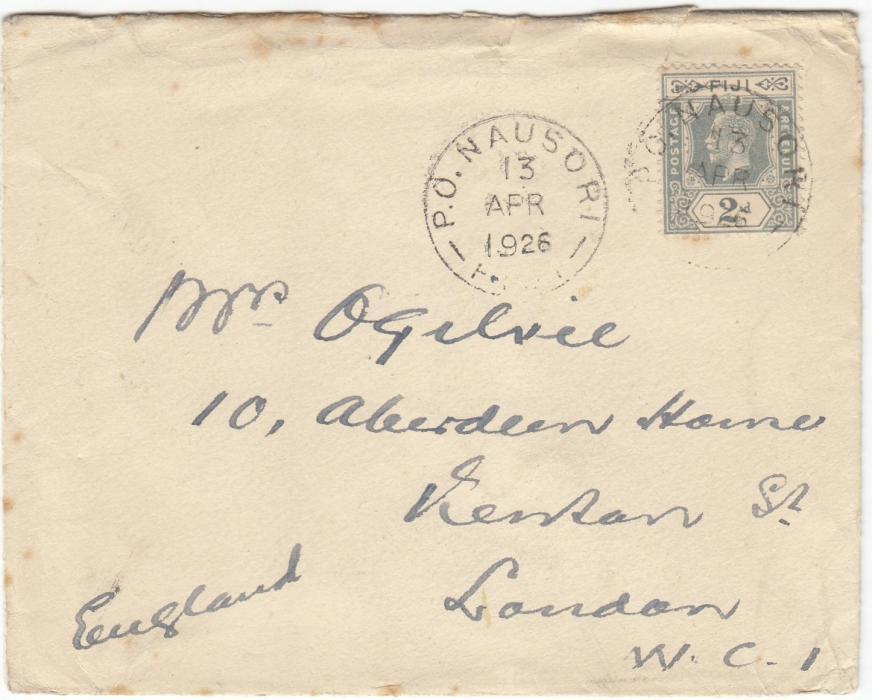 FIJI
POSTAGE
2d
P.O. NAUSORI
13
APR
1926
P.O. NAUSORI
13
APR
1926
Mrs Ogilvie
10, Aberdeen House
Kenton St
London
W.C.1
England